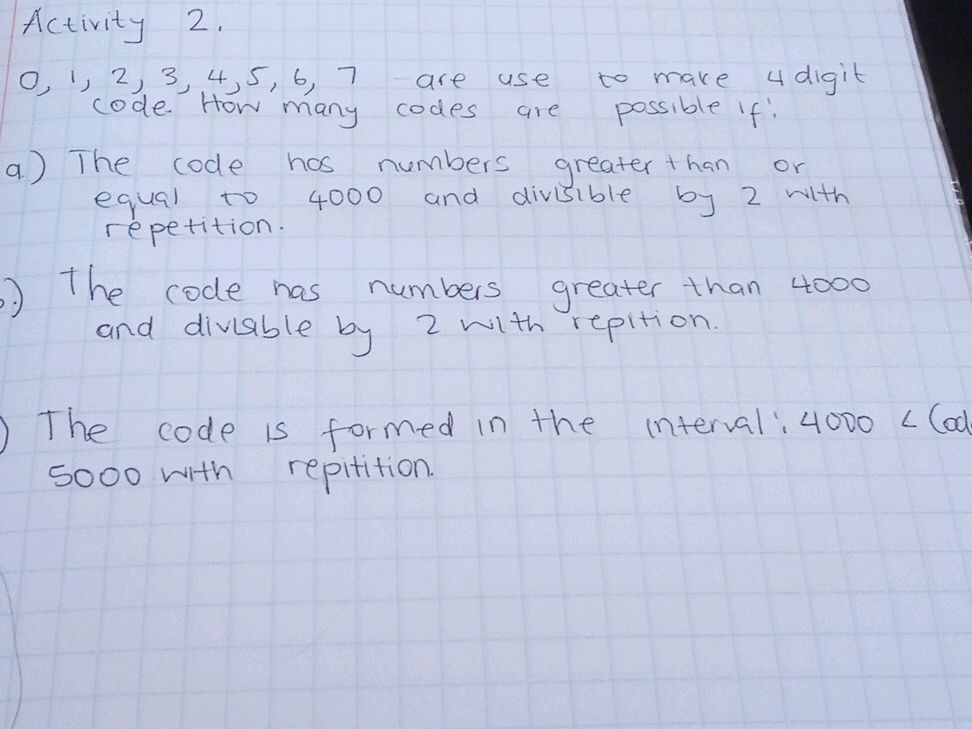 Activity 2.
0, 1, 2, 3, 4, 5, 6, 7 are use to make 4 digit
code. How many codes are possible if:
a.) The code has numbers greater than or
equal to 4000 and divisible by 2 with
repetition.
.) The code has numbers greater than 4000
and divisable by 2 with repition.
) The code is formed in the interval: 4000 <
5000 with repitition.